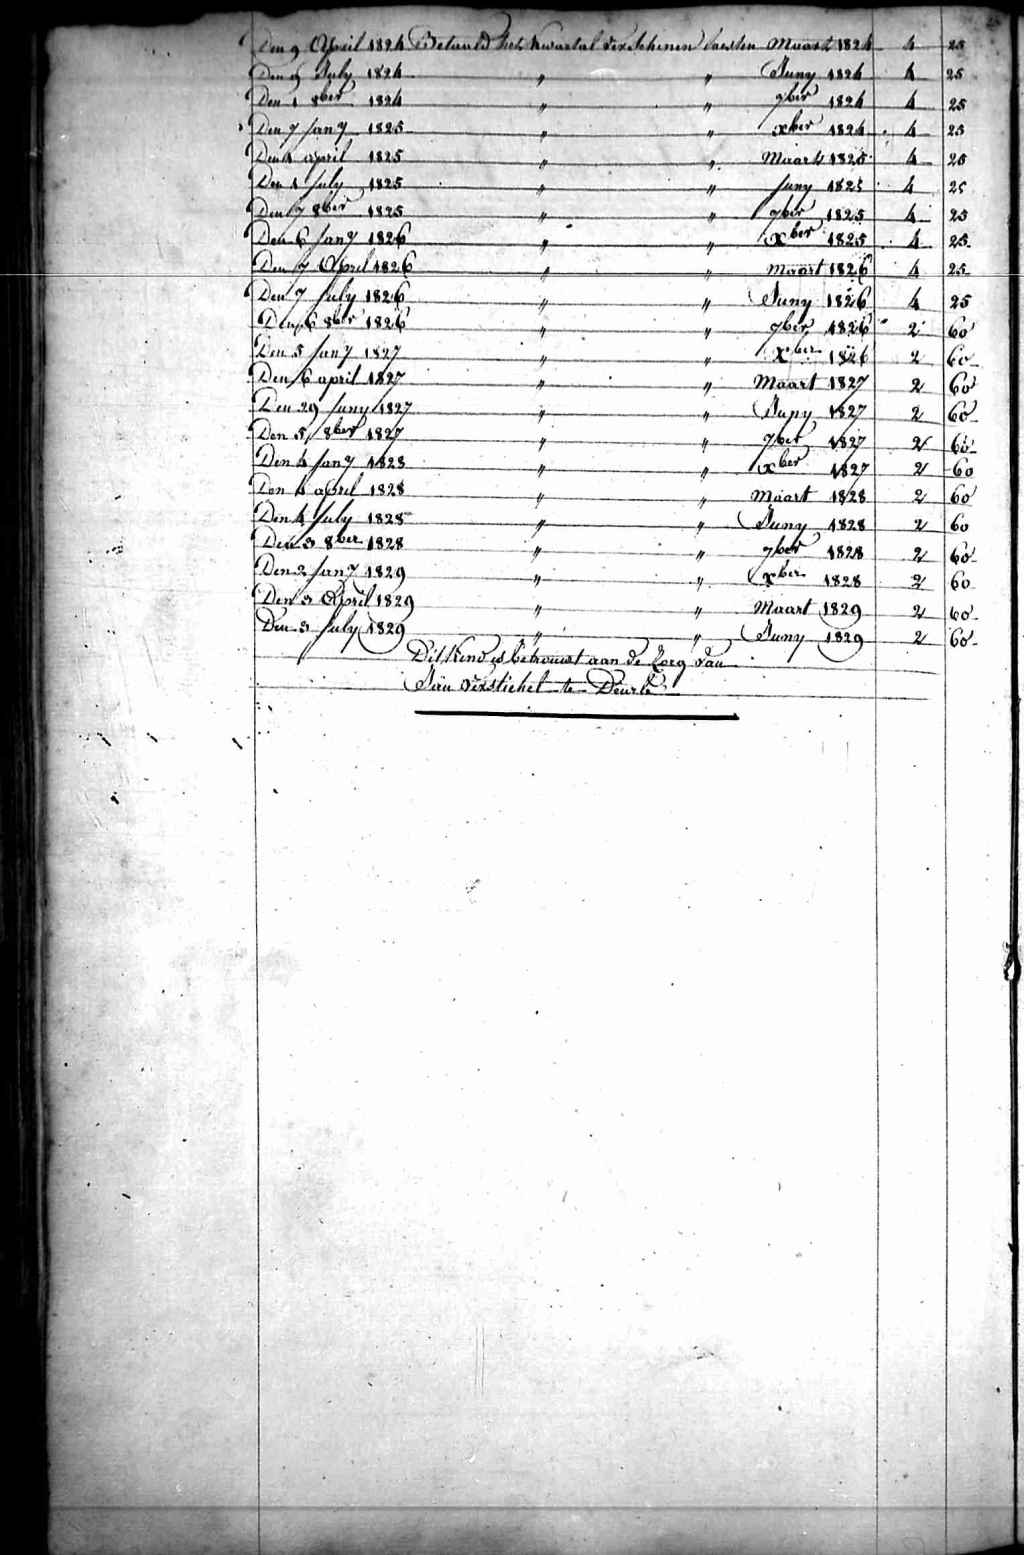 Den 9 April 1824 Betaald het kwartal verschenen laesten Maart 1824 4 25
Den July 1824 " " Juny 1824 4 25
Den 1 8ber 1824 " " 7ber 1824 4 25
Den 7 Jany 1825 " " xber 1824 4 25
Den 4 april 1825 " " Maart 1825 4 25
Den 1 July 1825 " " Juny 1825 4 25
Den 7 8ber 1825 " " 7ber 1825 4 25
Den 6 Jany 1826 " " xber 1825 4 25
Den 7 April 1826 " " Maart 1826 4 25
Den 7 July 1826 " " Juny 1826 4 25
Den 6 8ber 1826 " " 7ber 1826 2 60
Den 5 Jany 1827 " " xber 1826 2 60
Den 6 april 1827 " " Maart 1827 2 60
Den 29 Juny 1827 " " Juny 1827 2 60
Den 5 8ber 1827 " " 7ber 1827 2 60
Den 4 Jany 1828 " " xber 1827 2 60
Den 4 april 1828 " " Maart 1828 2 60
Den 4 July 1828 " " Juny 1828 2 60
Den 3 8ber 1828 " " 7ber 1828 2 60
Den 2 Jany 1829 " " xber 1828 2 60
Den 3 April 1829 " " Maart 1829 2 60
Den 3 July 1829 " " Juny 1829 2 60
Dit Kind is betrouwt aan de Zorg van
Jan Verstichel te Deurle